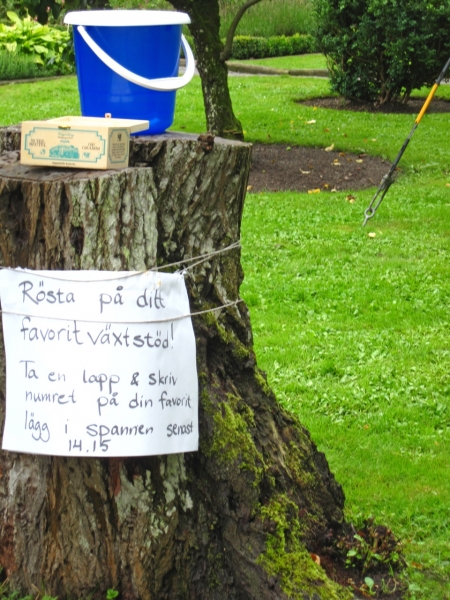 Rösta på ditt
favorit växtstöd!
Ta en lapp & skriv
numret på din favorit
lägg i spannen senast
14.15